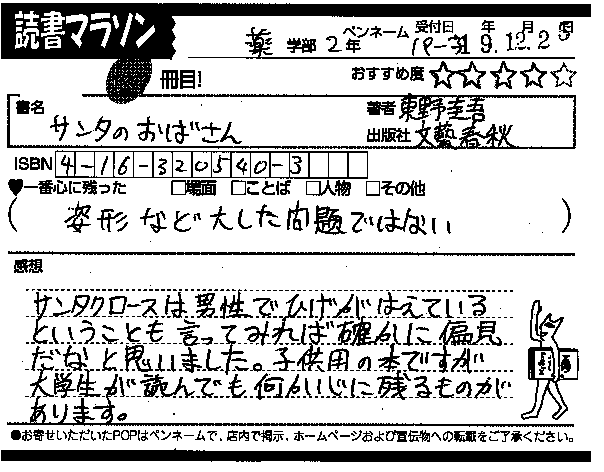 読書マラソン
冊目!
薬 学部 2年 ペンネーム 受付日 年 月 日
19.12.2
おすすめ度 ☆☆☆☆☆
書名 サンタのおばさん
著者 東野圭吾
出版社 文藝春秋
ISBN 4-16-320540-3
♥一番心に残った □場面 □ことば □人物 □その他
(姿形など大した問題ではない)
感想
サンタクロースは男性でひげがはえている
ということも言ってみれば確かに偏見
だなと思いました。子供用の本ですが
大学生が読んでも何か心に残るものが
あります。
●お寄せいただいたPOPはペンネームで、店内で掲示、ホームページおよび宣伝物への転載をご了承ください。